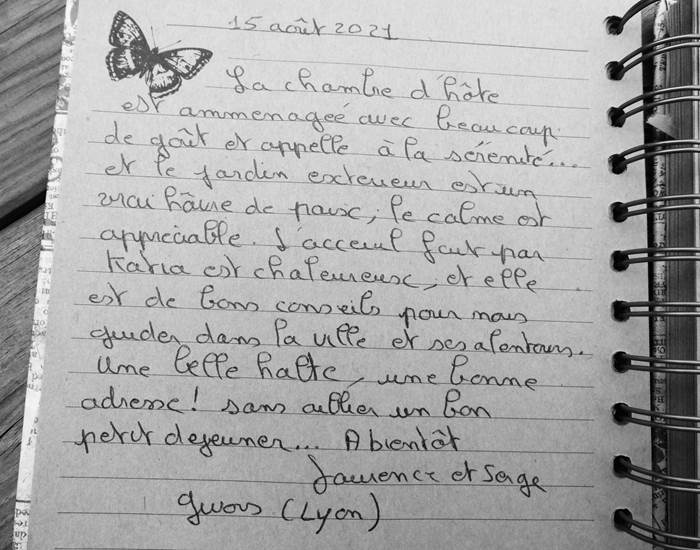 15 août 2021
La chambre d'hôte
est ammenagée avec beaucoup
de goût et appelle à la sérémité...
et le jardin exterieur est un
vrai hâvre de paix, le calme est
appréciable. L'acceuil fait par
Katia est chaleureux, et elle
est de bons conseils pour nous
guider dans la ville et ses alentours.
Une belle halte, une bonne
adresse! sans oublier un bon
petit dejeuner... A bientôt
Laurence et Serge
(Lyon)